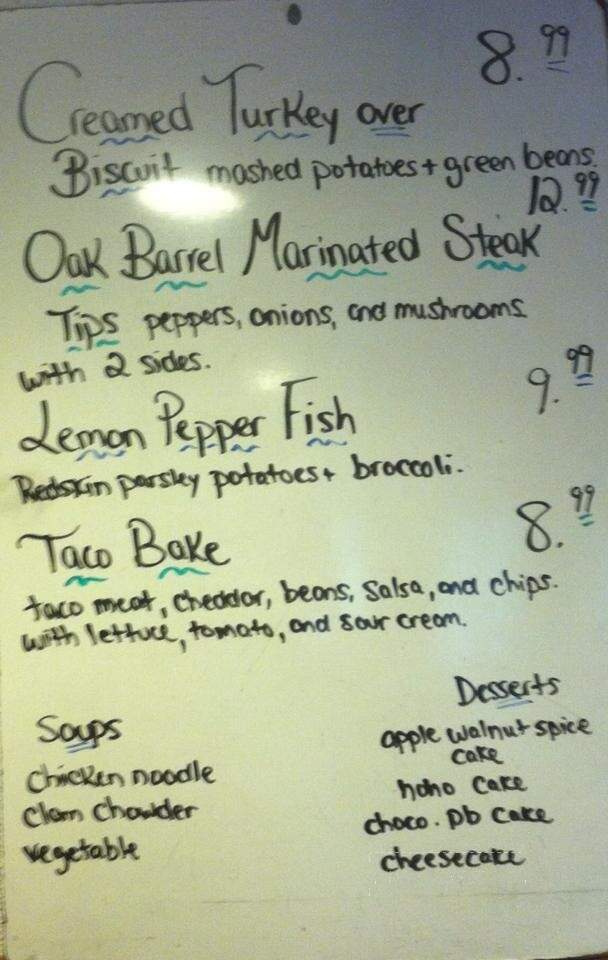 8.99
Creamed Turkey over
Biscuit mashed potatoes + green beans.
12.99
Oak Barrel Marinated Steak
Tips peppers, onions, and mushrooms.
with 2 sides.
9.99
Lemon Pepper Fish
Redskin parsley potatoes + broccoli.
8.99
Taco Bake
taco meat, cheddar, beans, salsa, and chips.
with lettuce, tomato, and sour cream.
Soups
chicken noodle
clam chowder
vegetable
Desserts
apple walnut spice
cake
hoho cake
choco. pb cake
cheesecake